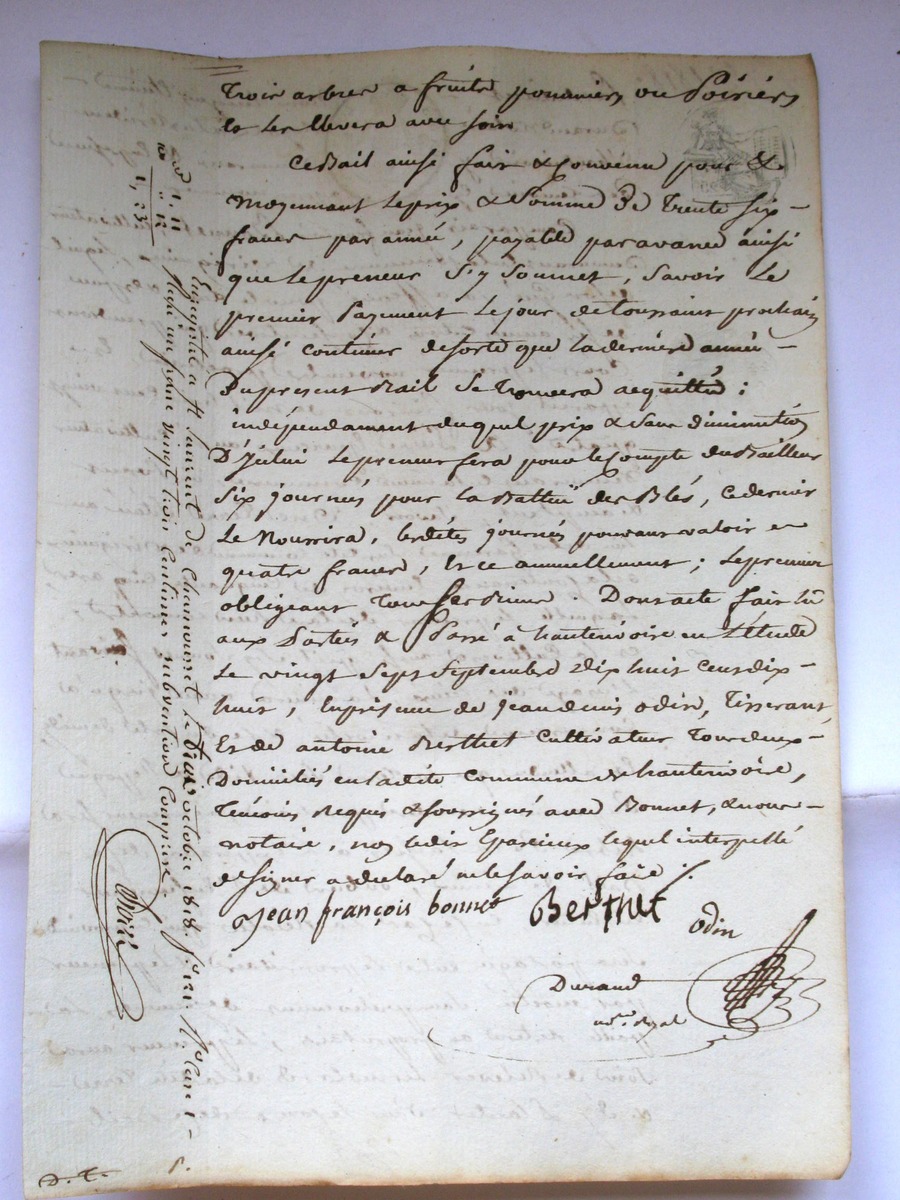 Trois arbres a fruits pommiers ou Poiriers
et les Elevera avec soin
Ce Bail ainsi fait & Convenu pour &
Moyennant le prix & Somme De Trente Six –
francs par année, payable par avance ainsi
que le preneur S'y Soumet, Savoir Le
premier Payement Le jour de toussaint prochain
ainsi continuer de sorte que la derniere année –
Du present Bail se trouvera acquittée ;
indépendament duquel prix & Sans diminution
D'Jcelui Le preneur fera pour le Compte du Bailleur
Six journées pour la Battue des Blés, ce dernier
Le Nourrira, lesdites journés pouvant valoir
quatre francs, Et ce annuellement ; le premier
obligeant Dont acte fait lu
aux Parties & Passé à hauterivoire en L'étude
Le vingt Sept Septembre Dix huit Cent dix –
huit, En présence de jean denis odin, Tisserant,
Et de antoine Berthet Cultivateur Tous deux –
Domiciliés en la dite Commune de hauterivoire,
Témoins Requis & soussignés avec Bonnet, & nous –
notaire, non ledit lequel interpellé
de signer a declaré ne le savoir faire ./.
Jean françois bonnet Berthet odin
Durand
not.re Royal
Enregistré a St Laurent de Chamousset le octobre 1818 f.o 121
Reçu un franc vingt trois centimes subvention Comprise.
1, 11
" 12
1, 23